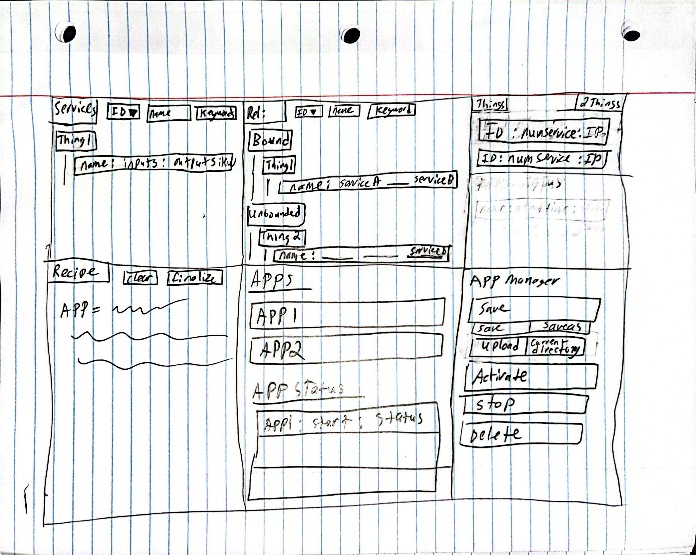 Services ID▼ name Keyword
Thing1
name: inputs: outputs:
Rel: ID▼ name Keyword
Bound
Thing1
name: serviceA ___ serviceB
Unbounded
Thing2
name: ___ ___ serviceB
Things 2 Things
ID: numservice: IP
ID: numService: IP
Recipe clear finalize
APP =
APPS
APP1
APP2
APP Status
APP1: start: status
APP Manager
Save
save saveas
Upload current directory
Activate
Stop
Delete